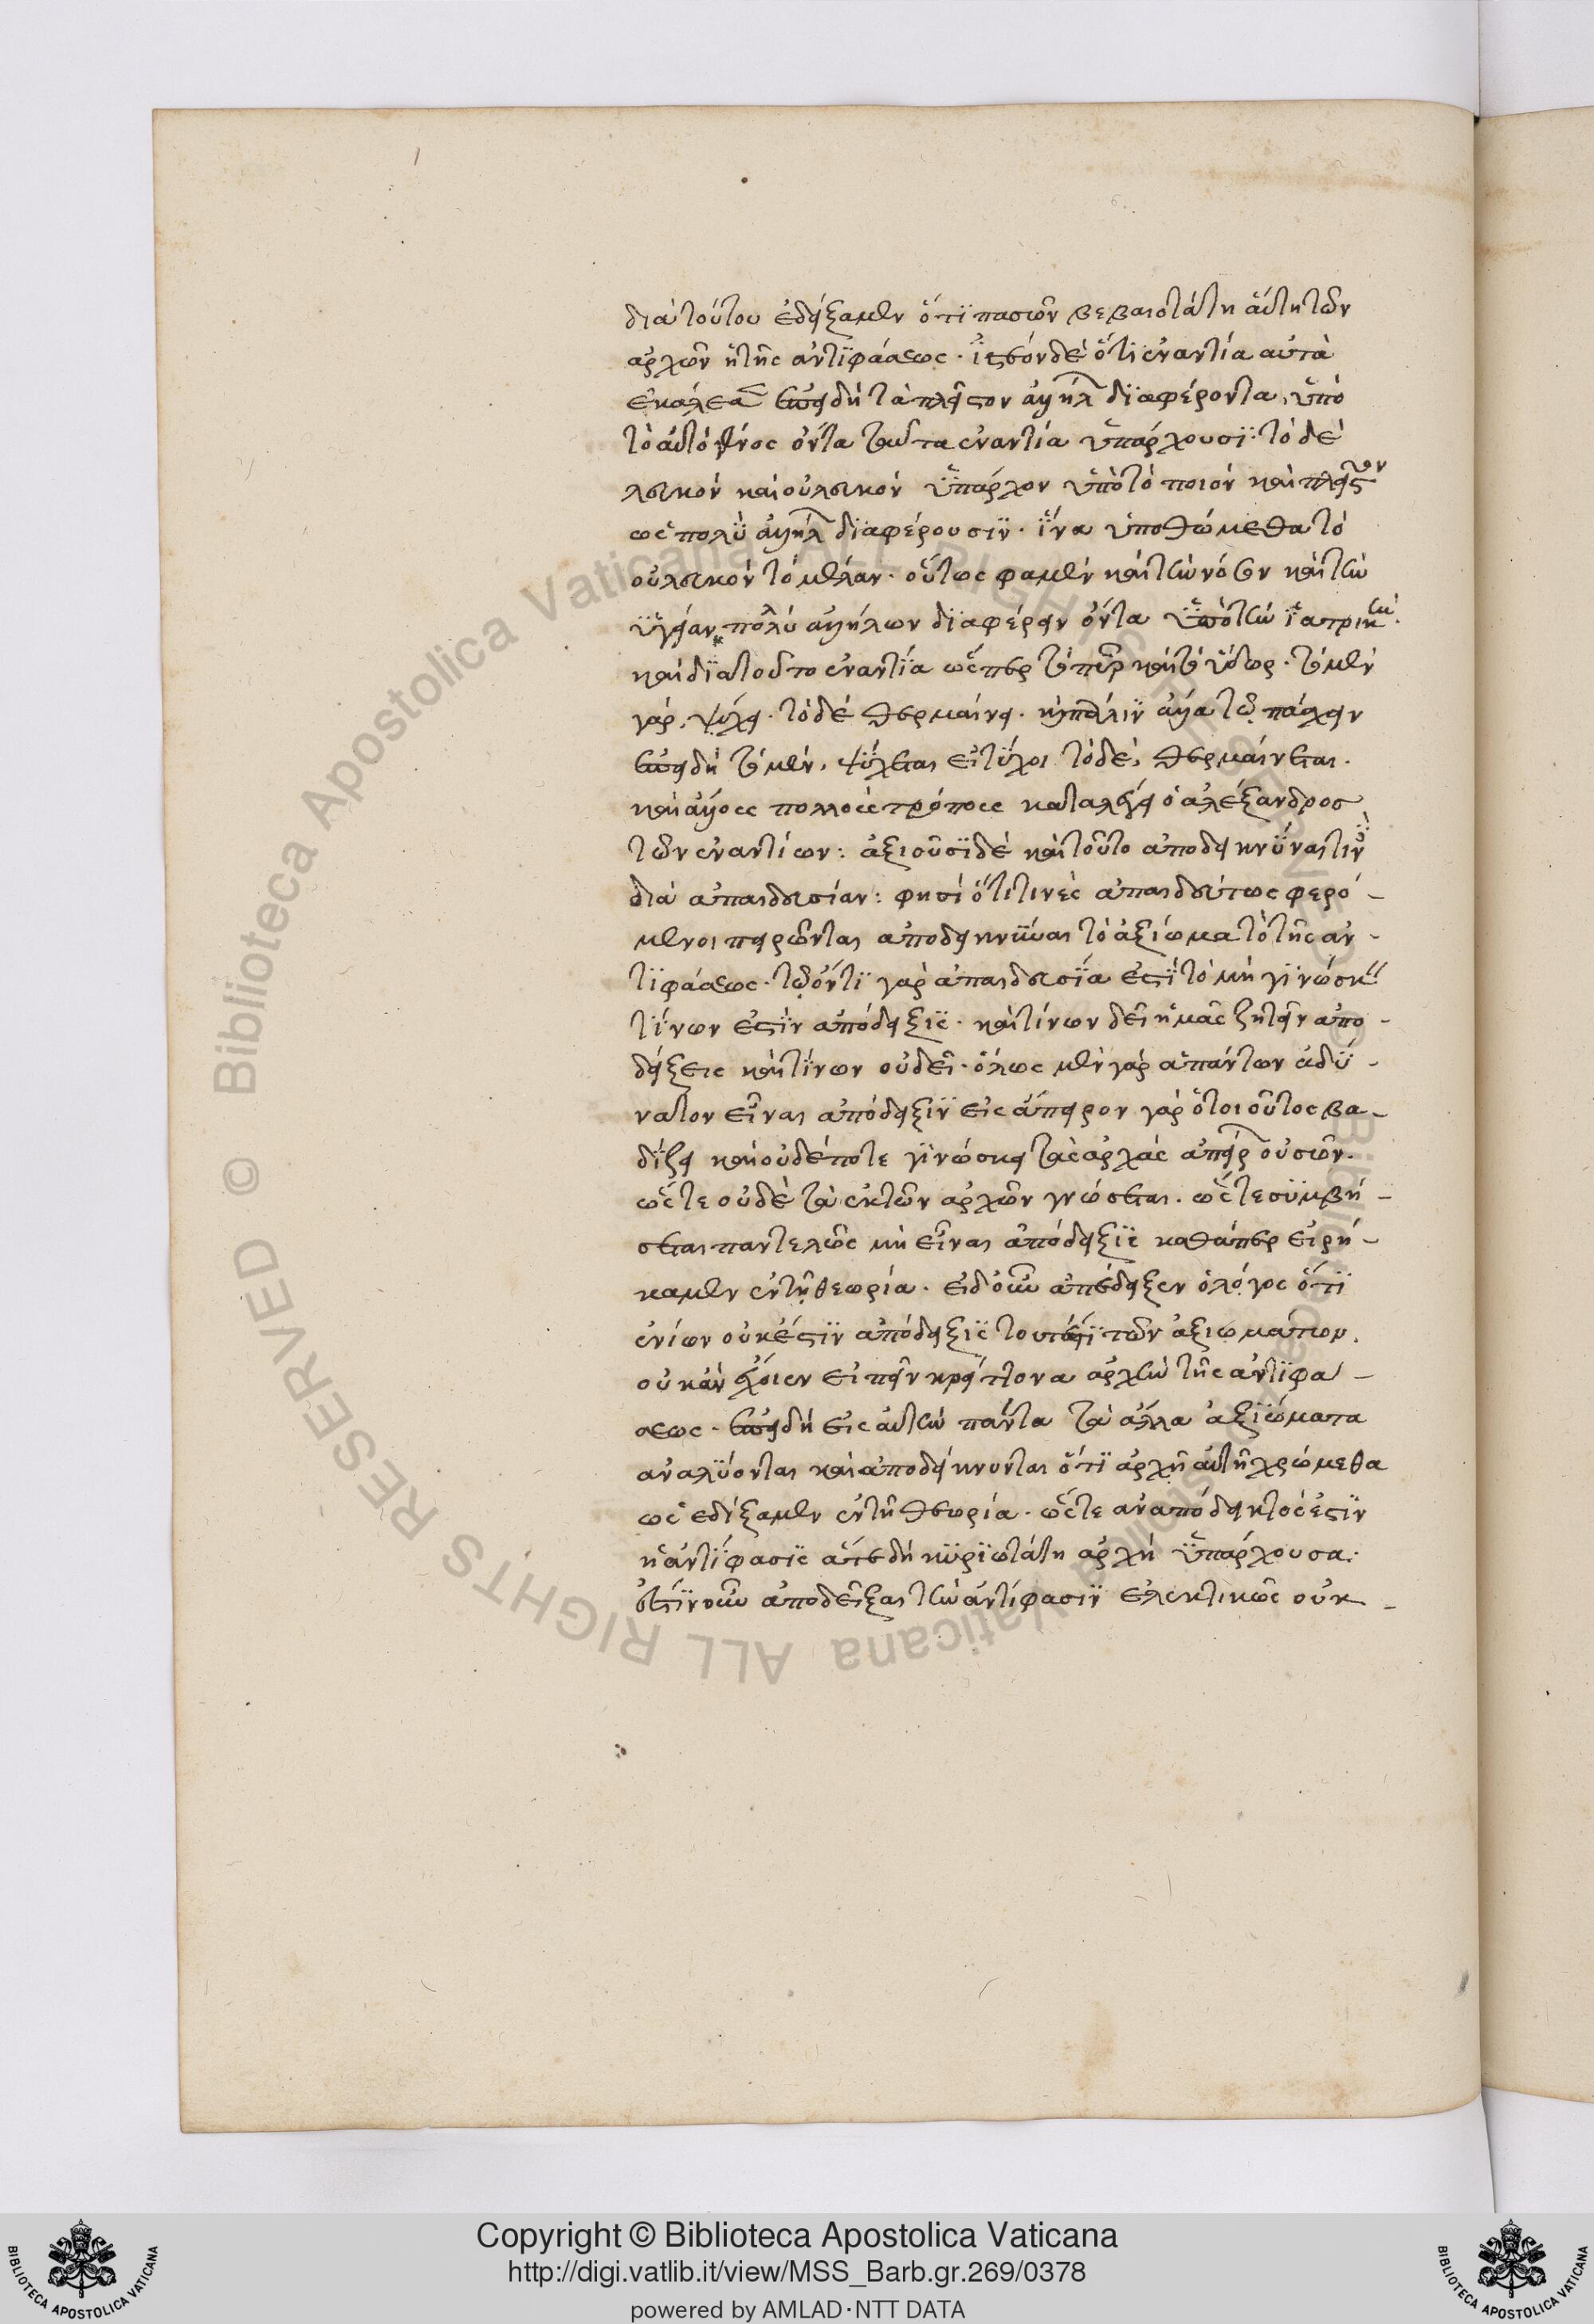 διὰ τούτου ἐδείξαμεν ὅτι πασῶν βεβαιοτάτη αὕτη τῶν
ἀρχῶν ἡ τῆς ἀντιφάσεως. ἰστέον δὲ ὅτι ἐναντία αὐτὰ
ἐκάλεσεν ἐπειδὴ τὰ πλεῖστον ἀλλήλ διαφέροντα, ὑπὸ
τὸ αὐτὸ γένος ὄντα ταῦτα ἐναντία ὑπάρχουσι· τὸ δὲ
λευκὸν καὶ οὐ λευκὸν ὑπάρχον ὑπὸ τὸ ποιὸν καὶ πλεῖστον
ὡς πολὺ ἀλλήλ διαφέρουσιν. ἵνα ὑποθώμεθα τὸ
οὐ λευκὸν τὸ μέλαν. οὕτως φαμὲν καὶ τὴν νόσον καὶ τὴν
ὑγείαν πολὺ ἀλλήλων διαφέρειν ὄντα ὑπὸ τὴν ἰατρικήν.
καὶ διὰ τοῦτο ἐναντία ὥσπερ τὸ πῦρ καὶ τὸ ὕδωρ. τὸ μὲν
γὰρ, ψύχει. τὸ δὲ θερμαίνει. καὶ πάλιν ἀλλὰ τῷ πάσχειν
ἐπειδὴ τὸ μὲν, ψύχεται εἰ τύχοι τὸ δὲ, θερμαίνεται.
καὶ ἄλλοις πολλοῖς τρόποις καταλέγει ὁ ἀλέξανδρος
τῶν ἐναντίων: ἀξιοῦσι δὲ καὶ τοῦτο ἀποδεικνύναι τινὲς
διὰ ἀπαιδευσίαν: φησὶ ὅτι τινὲς ἀπαιδεύτως φερό-
μενοι πειρῶνται ἀποδεικνύναι τὸ ἀξίωμα τὸ τῆς ἀν-
τιφάσεως. τῷ ὄντι γὰρ ἀπαιδευσία ἐστὶ τὸ μὴ γινώσκειν
τίνων ἐστὶν ἀπόδειξις. καὶ τίνων δεῖ ἡμᾶς ζητεῖν ἀπο-
δείξεις καὶ τίνων οὐ δεῖ. ὅλως μὲν γὰρ ἁπάντων ἀδύ-
νατον εἶναι ἀπόδειξιν εἰς ἄπειρον γὰρ ὁ τοιοῦτος βα-
δίζει καὶ οὐδέποτε γινώσκει τὰς ἀρχὰς ἀπείρ οὐσῶν.
ὥστε οὐδὲ τὰ ἐκ τῶν ἀρχῶν γνώσεται. ὥστε συμβή-
σεται παντελῶς μὴ εἶναι ἀπόδειξις καθάπερ εἰρή-
καμεν ἐν τῇ θεωρία. εἰ δ' οὖν ἀπέδειξεν ὁ λόγος ὅτι
ἐνίων οὐκ ἔστιν ἀπόδειξις τουτέστι τῶν ἀξιωμάτων.
οὐκ ἂν ἔχοιεν εἰπεῖν κρείττονα ἀρχὴν τῆς ἀντιφά-
σεως. ἐπειδὴ εἰς αὐτὴν πάντα τὰ ἄλλα ἀξιώματα
ἀναλύονται καὶ ἀποδείκνυνται ὅτι ἀρχῇ αὐτῇ χρώμεθα
ὡς ἐδείξαμεν ἐν τῇ θεωρία. ὥστε ἀναπόδεικτός ἐστιν
ἡ ἀντίφασις ἅτε δὴ κυριωτάτη ἀρχὴ ὑπάρχουσα:
ἔστιν οὖν ἀποδεῖξαι τὴν ἀντίφασιν ἐλεκτικῶς οὐκ -
Copyright © Biblioteca Apostolica Vaticana
http://digi.vatlib.it/view/MSS_Barb.gr.269/0378
powered by AMLAD·NTT DATA